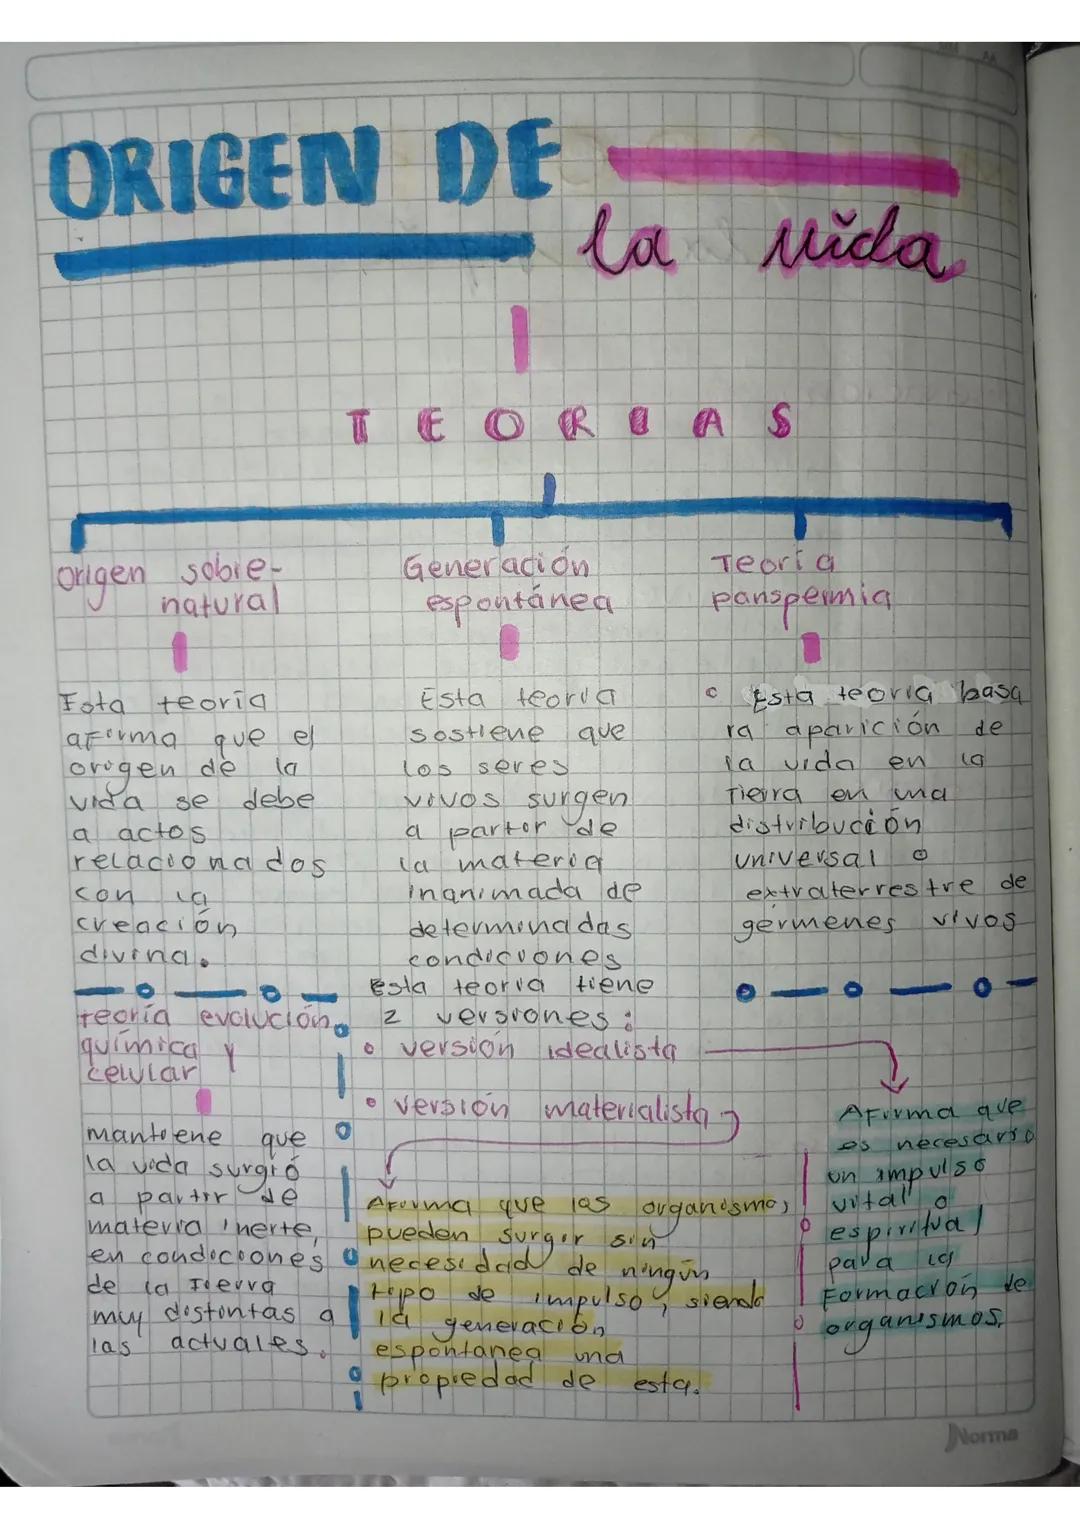 ORIGEN DE
la vida
TEORIAS
origen sobre-
natural
Esta teoría
afirma que el
origen de la
vida se debe
a actos
relacionados
con la
creación
divina.
Generación
espontánea
Esta teoria
sostiene que
los seres
vivos surgen
a partir de
la materia
inanimada de
determinadas
condiciones
esta teoria tiene
2 versiones:
version idealista
versión materialista
Teoria
panspermia
Esta teoria basa
la aparición de
la vida en la
Tierra en una
distribución
universal o
extraterrestre de
gérmenes vivos
teoría evolución
química y
celular
mantiene que
la vida surgió
a partir de
materia inerte,
en condiciones
de la Tierra
muy distintas a
las actuales.
Afirma que los organismos
pueden surgir sin
necesidad de ningún
tipo de impulso, siendo
la generación
espontanea una
propiedad de esta.
Afirma que
es necesario
un impulso
vital o
espiritual
para la
formación de
organismos.
Norma